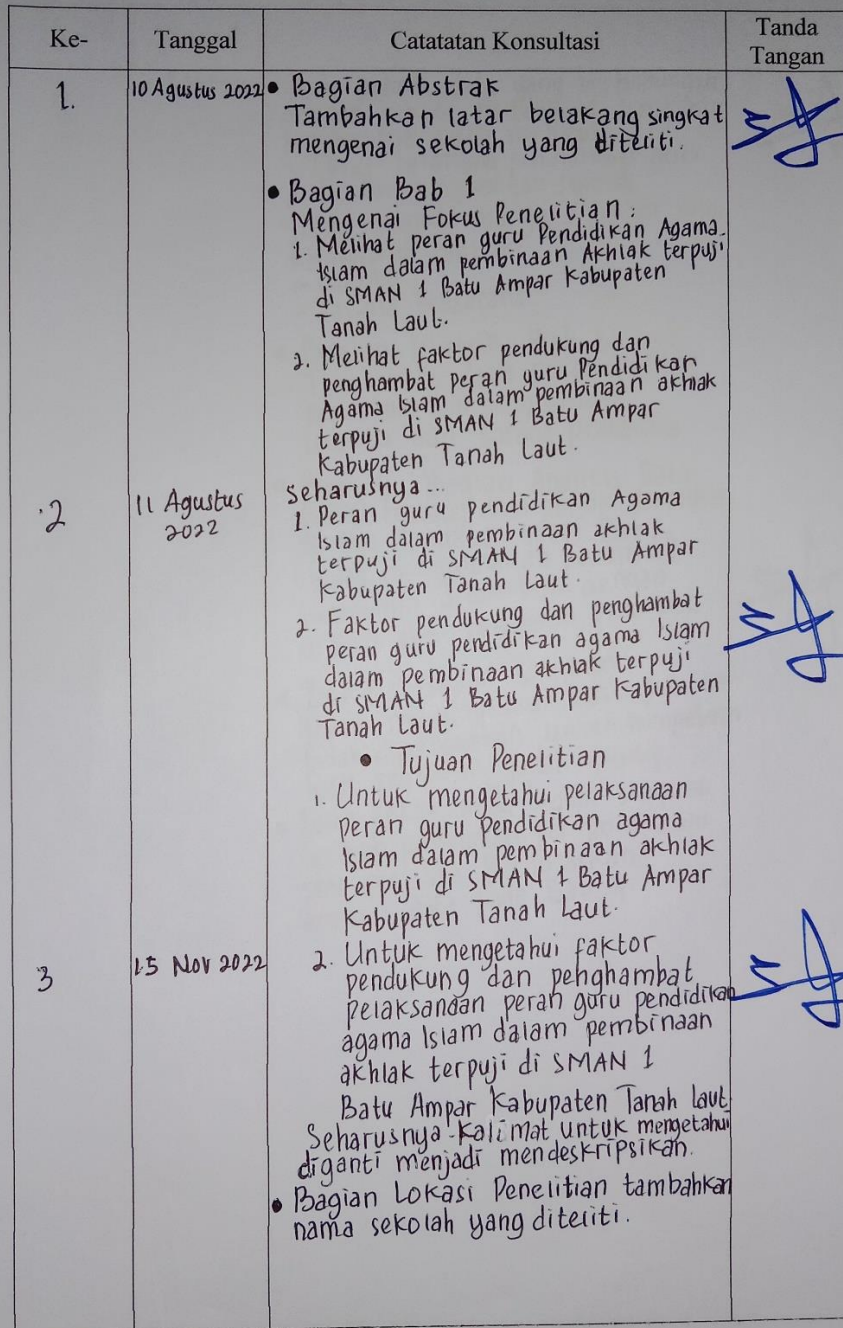 Ke-
Tanggal
Catatatan Konsultasi
Tanda
Tangan
1.
10 Agustus 2022
• Bagian Abstrak
Tambahkan latar belakang singkat
mengenai sekolah yang diteliti.
• Bagian Bab 1
Mengenai Fokus Penelitian :
1. Melihat peran guru Pendidikan Agama
Islam dalam pembinaan Akhlak terpuji
di SMAN 1 Batu Ampar Kabupaten
Tanah Laut.
2. Melihat faktor pendukung dan
penghambat peran guru Pendidikan
Agama Islam dalam pembinaan akhlak
terpuji di SMAN 1 Batu Ampar
Kabupaten Tanah Laut.
2
11 Agustus
2022
seharusnya...
1. Peran guru pendidikan Agama
Islam dalam pembinaan akhlak
terpuji di SMAN 1 Batu Ampar
Kabupaten Tanah Laut.
2. Faktor pendukung dan penghambat
peran guru pendidikan agama Islam
dalam pembinaan akhlak terpuji
di SMAN 1 Batu Ampar Kabupaten
Tanah Laut.
• Tujuan Penelitian
1. Untuk mengetahui pelaksanaan
peran guru pendidikan agama
Islam dalam pembinaan akhlak
terpuji di SMAN 1 Batu Ampar
Kabupaten Tanah Laut.
3
15 Nov 2022
2. Untuk mengetahui faktor
pendukung dan penghambat
pelaksanaan peran guru pendidikan
agama Islam dalam pembinaan
akhlak terpuji di SMAN 1
Batu Ampar Kabupaten Tanah Laut
Seharusnya kalimat untuk mengetahui
diganti menjadi mendeskripsikan.
• Bagian Lokasi Penelitian tambahkan
nama sekolah yang diteliti.